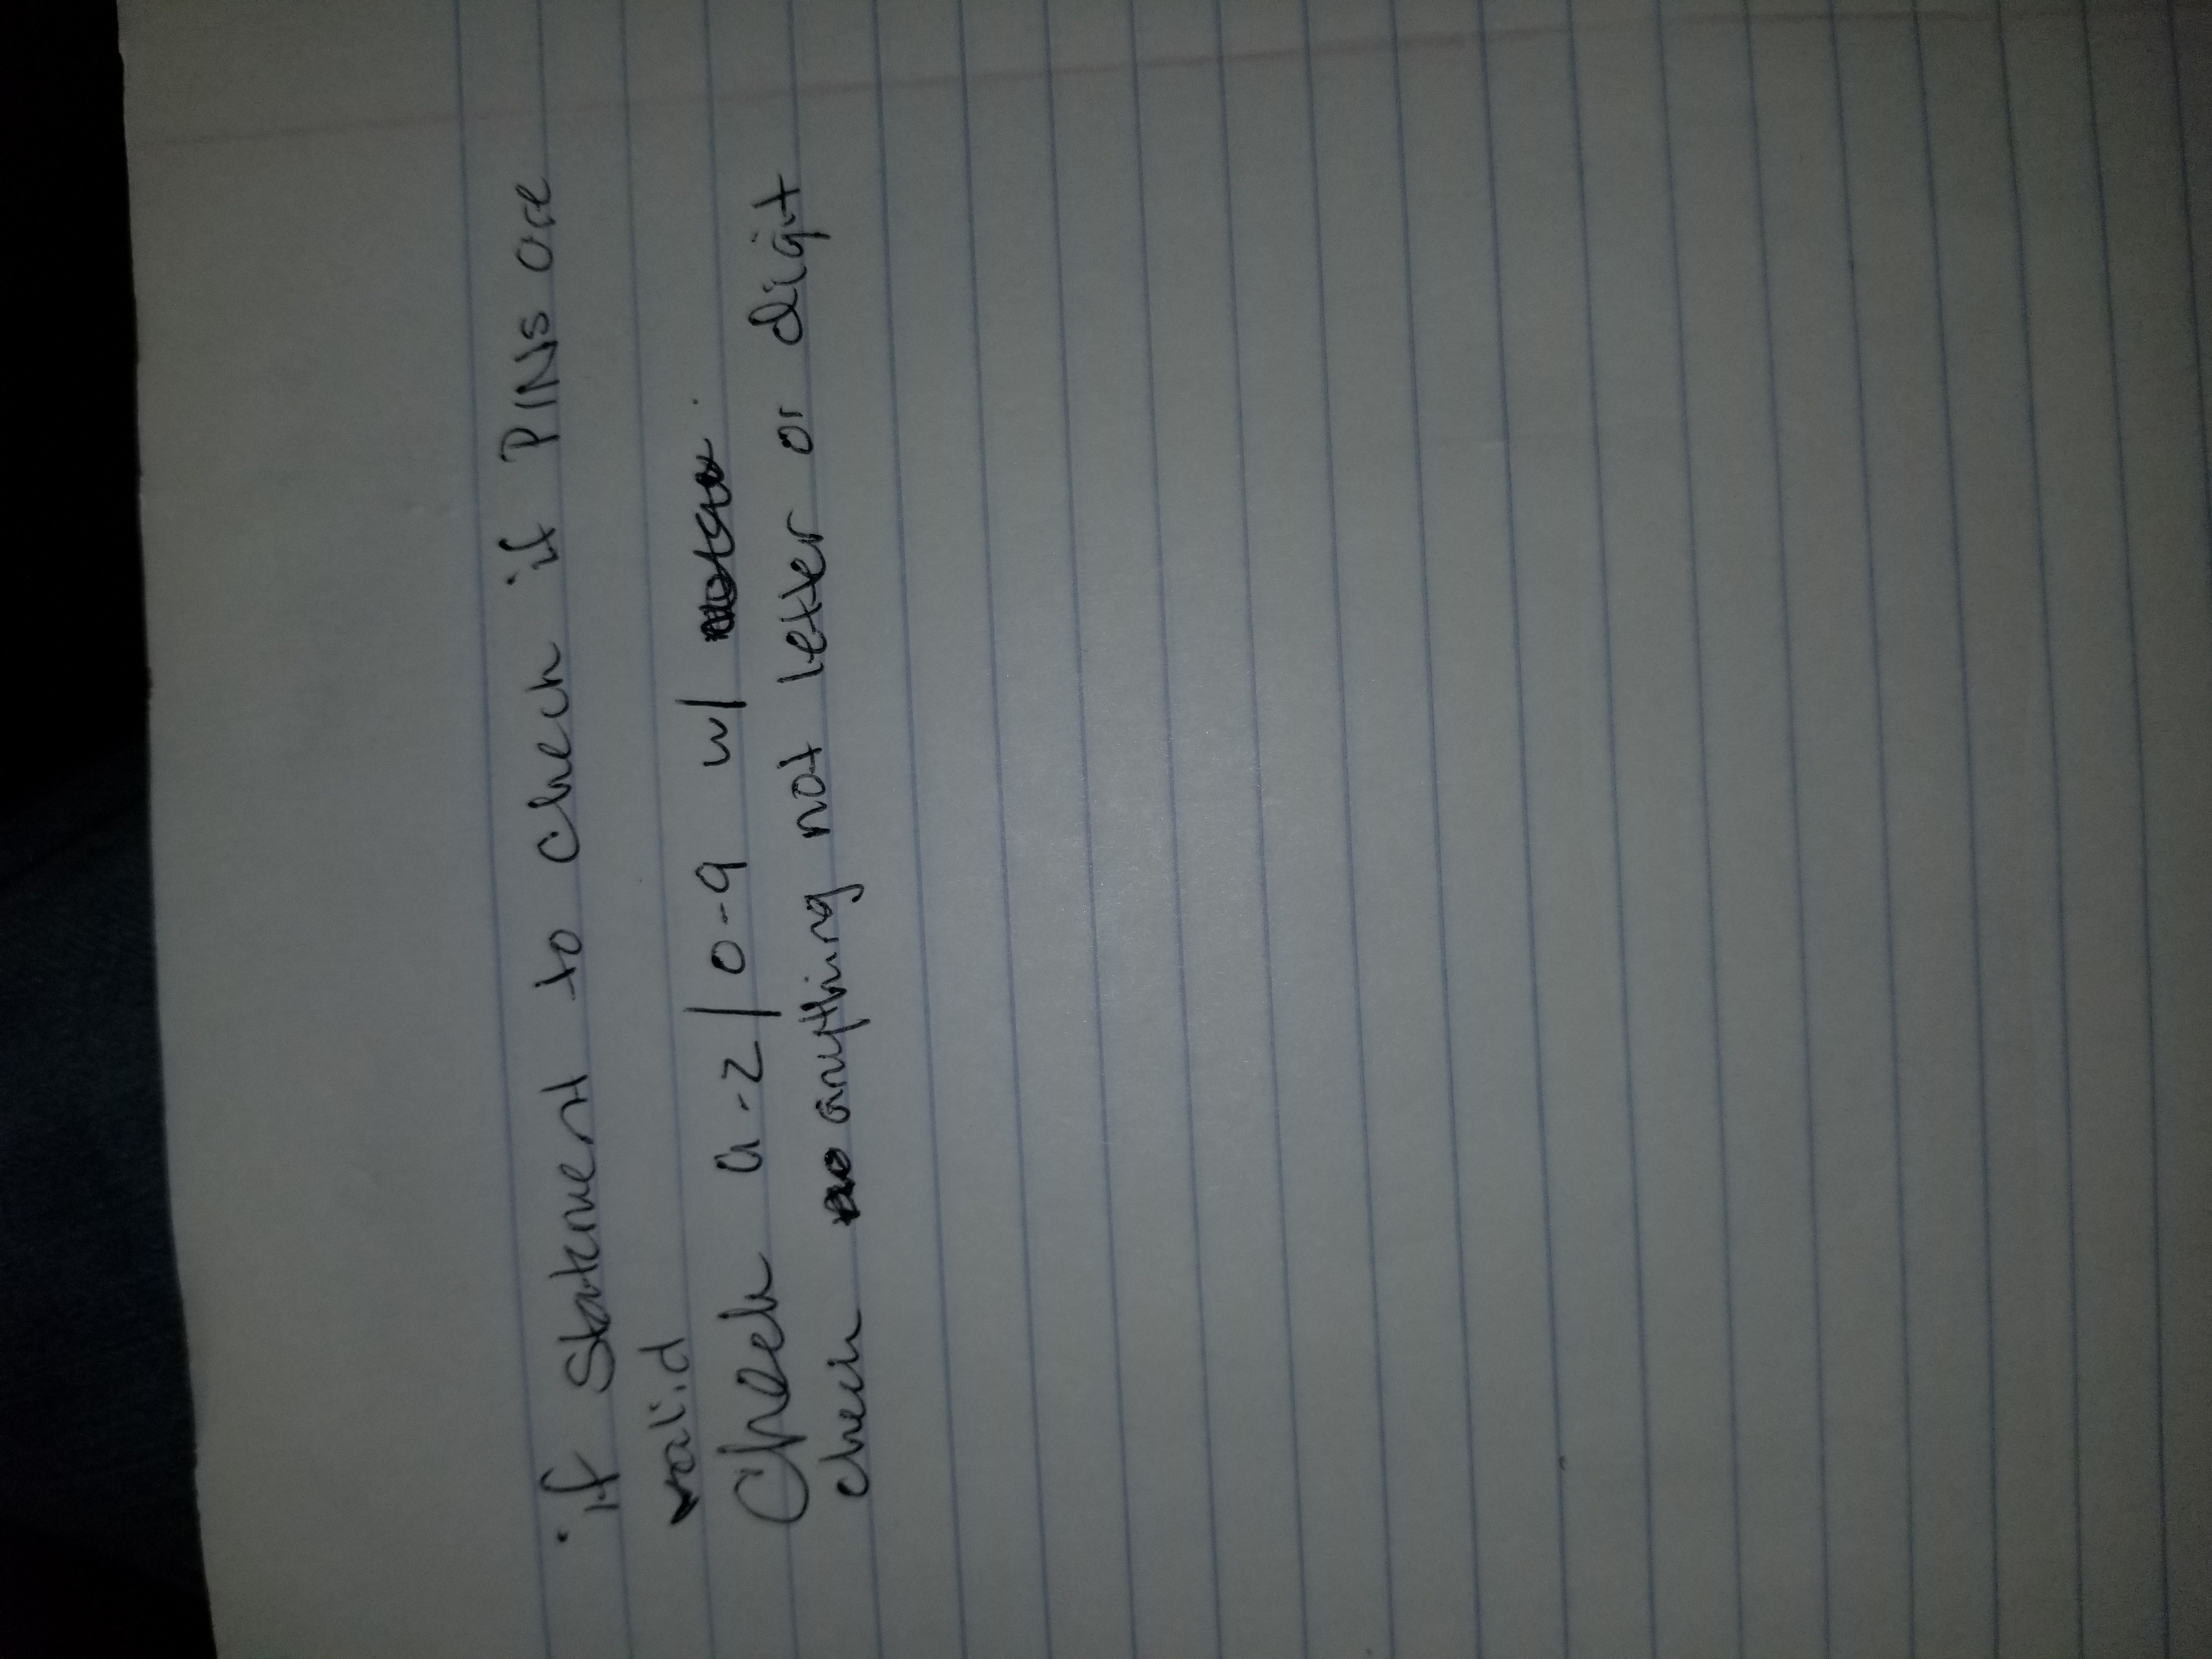 if statement to check if PINs are
valid
Check a-z/0-9 w/
check anything not letter or digit